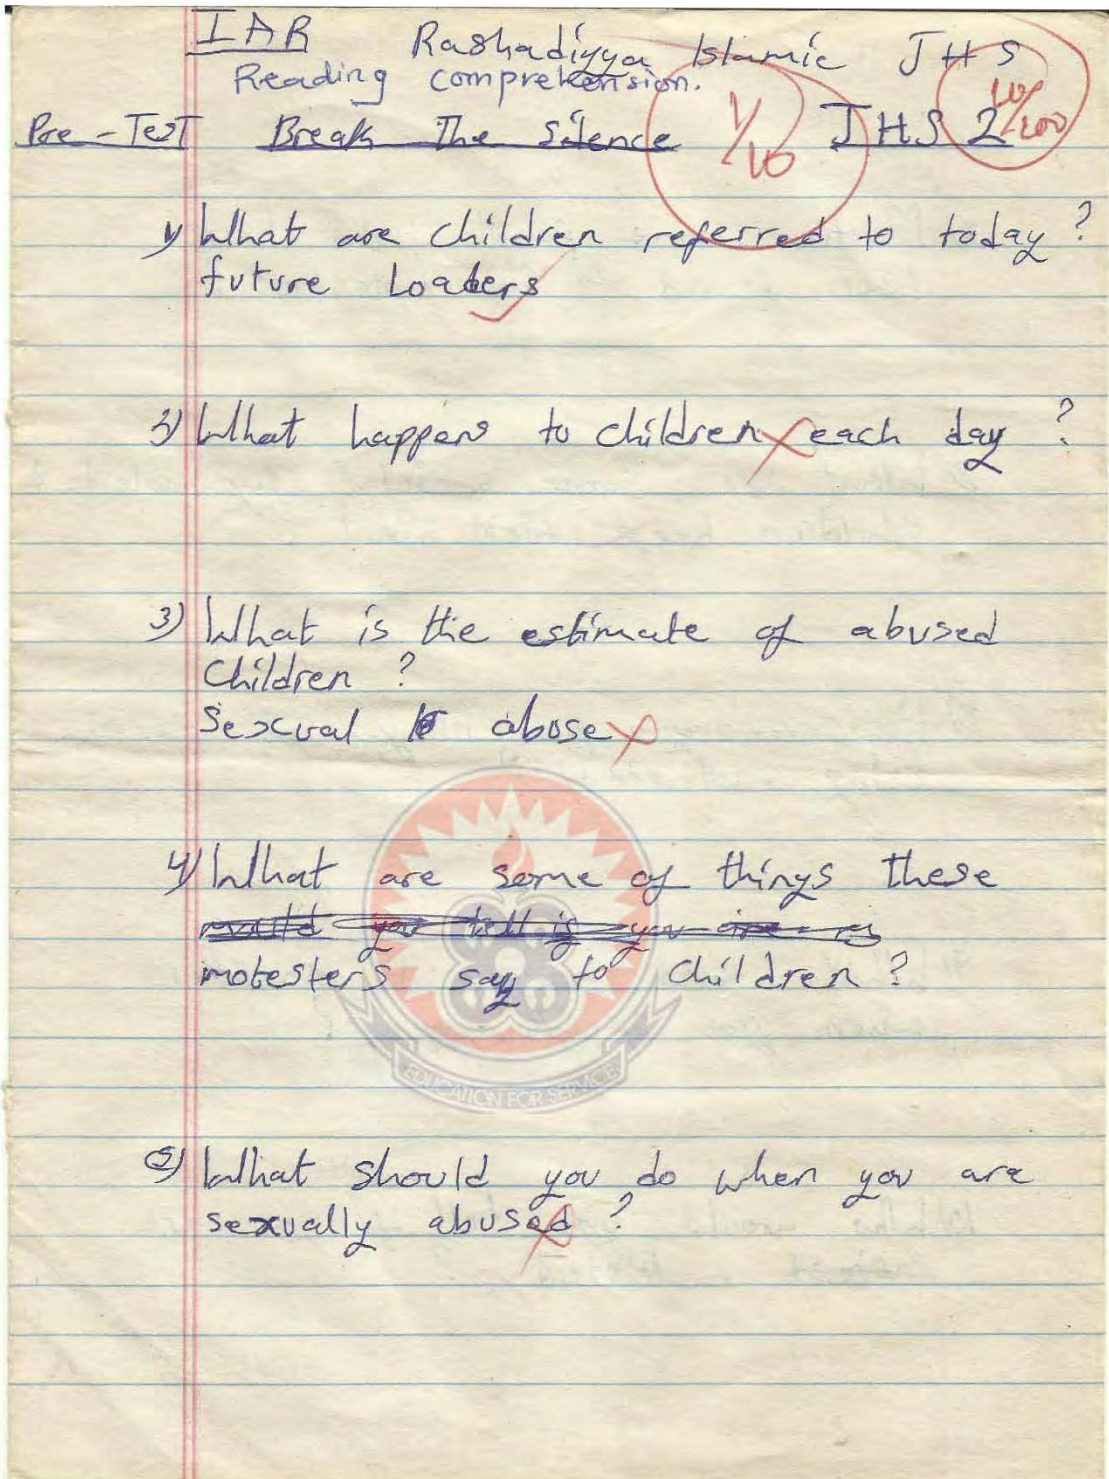 IAR Rashadiyya Islamic JHS
Reading comprehension.
Pre-Test Break The Silence 1/10 JHS 2 10/100
1) What are children referred to today?
future Loaders
2) What happens to children each day?
3) What is the estimate of abused
Children?
Sexual abuse
4) What are some of things these
motesters say to children?
EDUCATION FOR SERVICE
5) What should you do when you are
sexually abused?